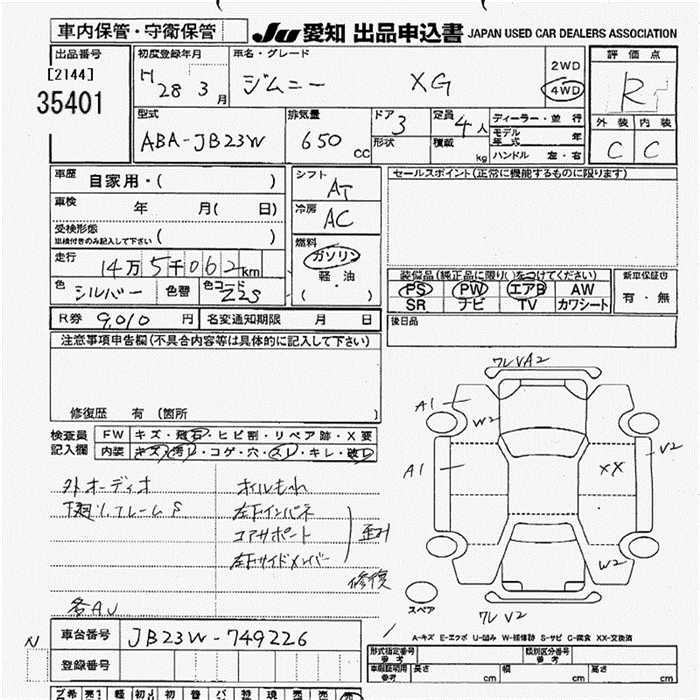 車内保管・守衛保管 JU 愛知 出品申込書 JAPAN USED CAR DEALERS ASSOCIATION
出品番号 初度登録年月 車名・グレード 2WD 評価点
[2144] H 28 3月 ジムニー XG 4WD R
35401
型式 排気量 ドア 定員 ディーラー・並行 外装 内装
ABA-JB23W 650cc 3 4人 モデル年式 年 C C
形状 積載 kg ハンドル 左・右
車歴 自家用・( ) シフト AT セールスポイント(正常に機能するものに限ります)
車検 年 月( 日) 冷房 AC
受検形態
車検付きのみ記入して下さい ( ) 燃料
走行 14万5千062km ガソリン
軽・油
( )
色 シルバー 色替 色コード Z2S
装備品(純正品に限り○をつけてください) 新車保証書
PS PW エアB AW 有・無
SR ナビ TV カワシート
R券 9,010円 名変通知期限 月 日 後日品
注意事項申告欄(不具合内容等は具体的に記入して下さい)
修復歴 有(箇所 )
検査員記入欄 FW キズ・飛石・ヒビ割・リペア跡・X要
内装 キズ・汚れ・コゲ・穴・スレ・キレ・破れ
外オーディオ オイルもれ
下廻り、フレームS 左下インパネ
コアサポート 歪み
左下サイドメンバー
修復
各AU
A1 W2 A1 XX V2 W2
スペア
A-キズ E-エクボ U-凹み W-補修跡 S-サビ C-腐食 XX-交換済
N 車台番号 JB23W-749226
登録番号
形式指定番号 参考 類別区分番号 参考
車庫証明用 参考 長さ cm 幅 cm 高さ cm